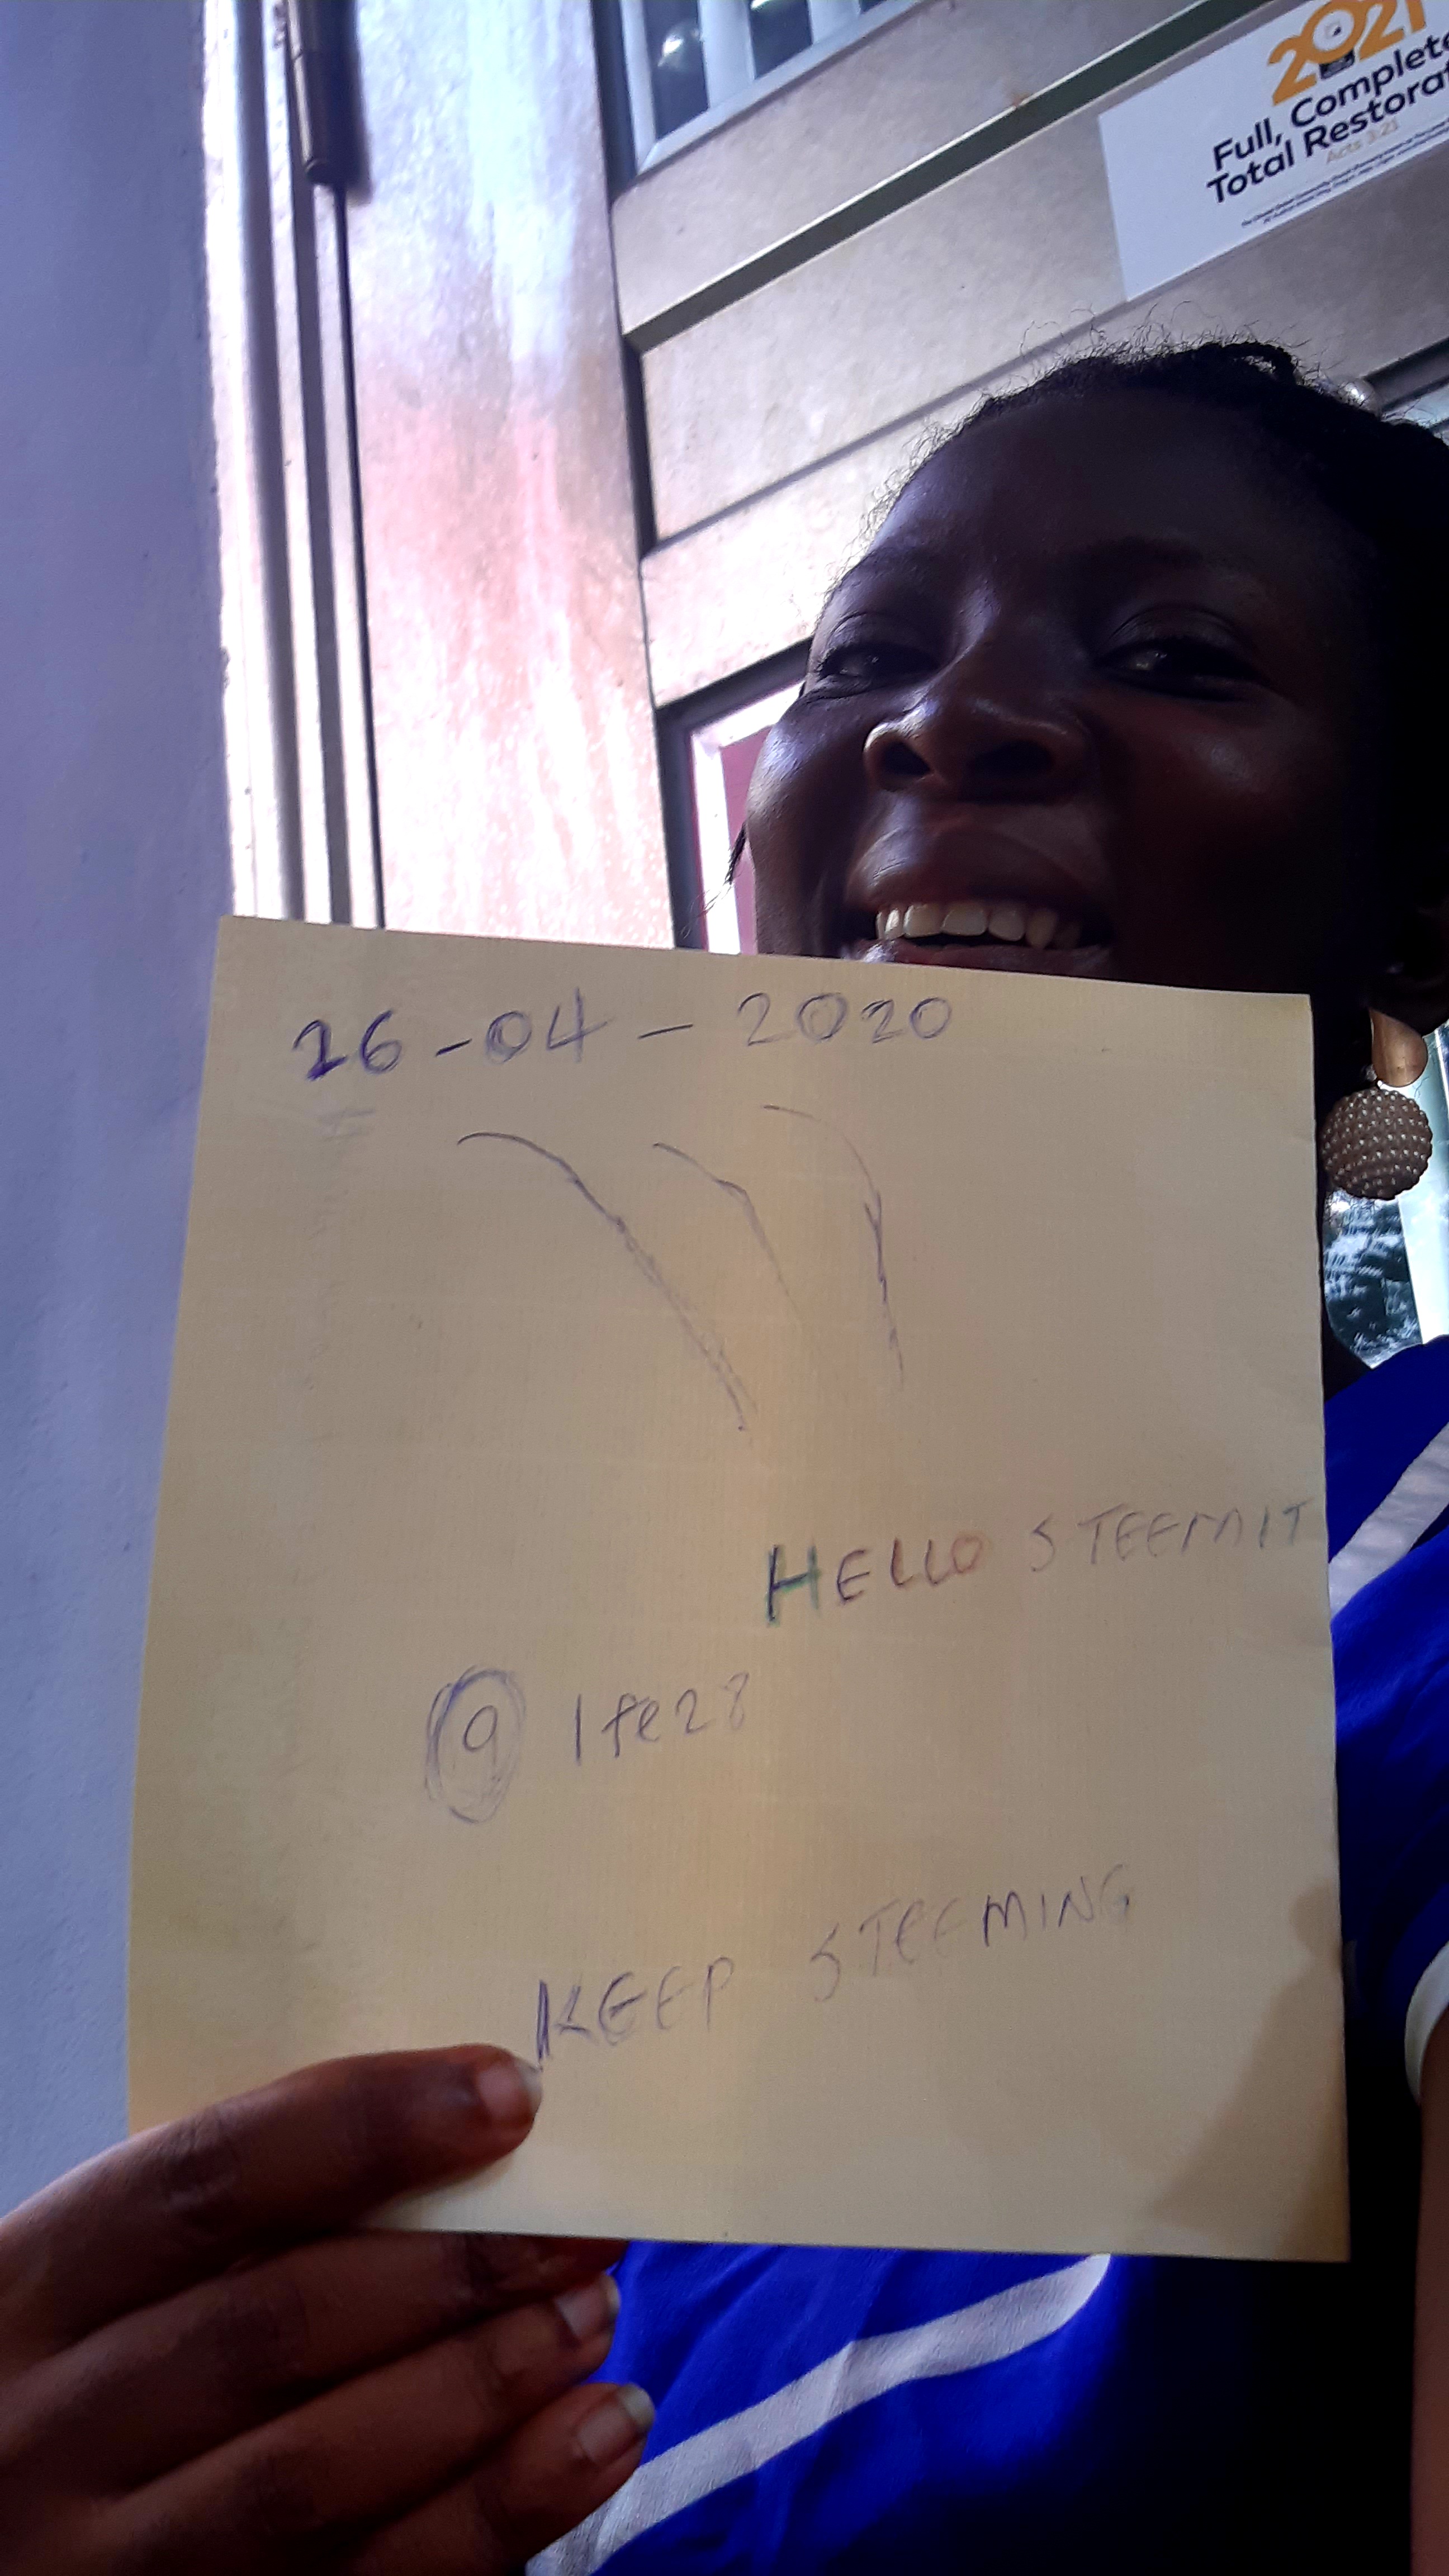 2021
Full, Complete
Total Restorat
Acts 3:21
26-04-2020
HELLO STEEMIT
@ Ife28
KEEP STEEMING